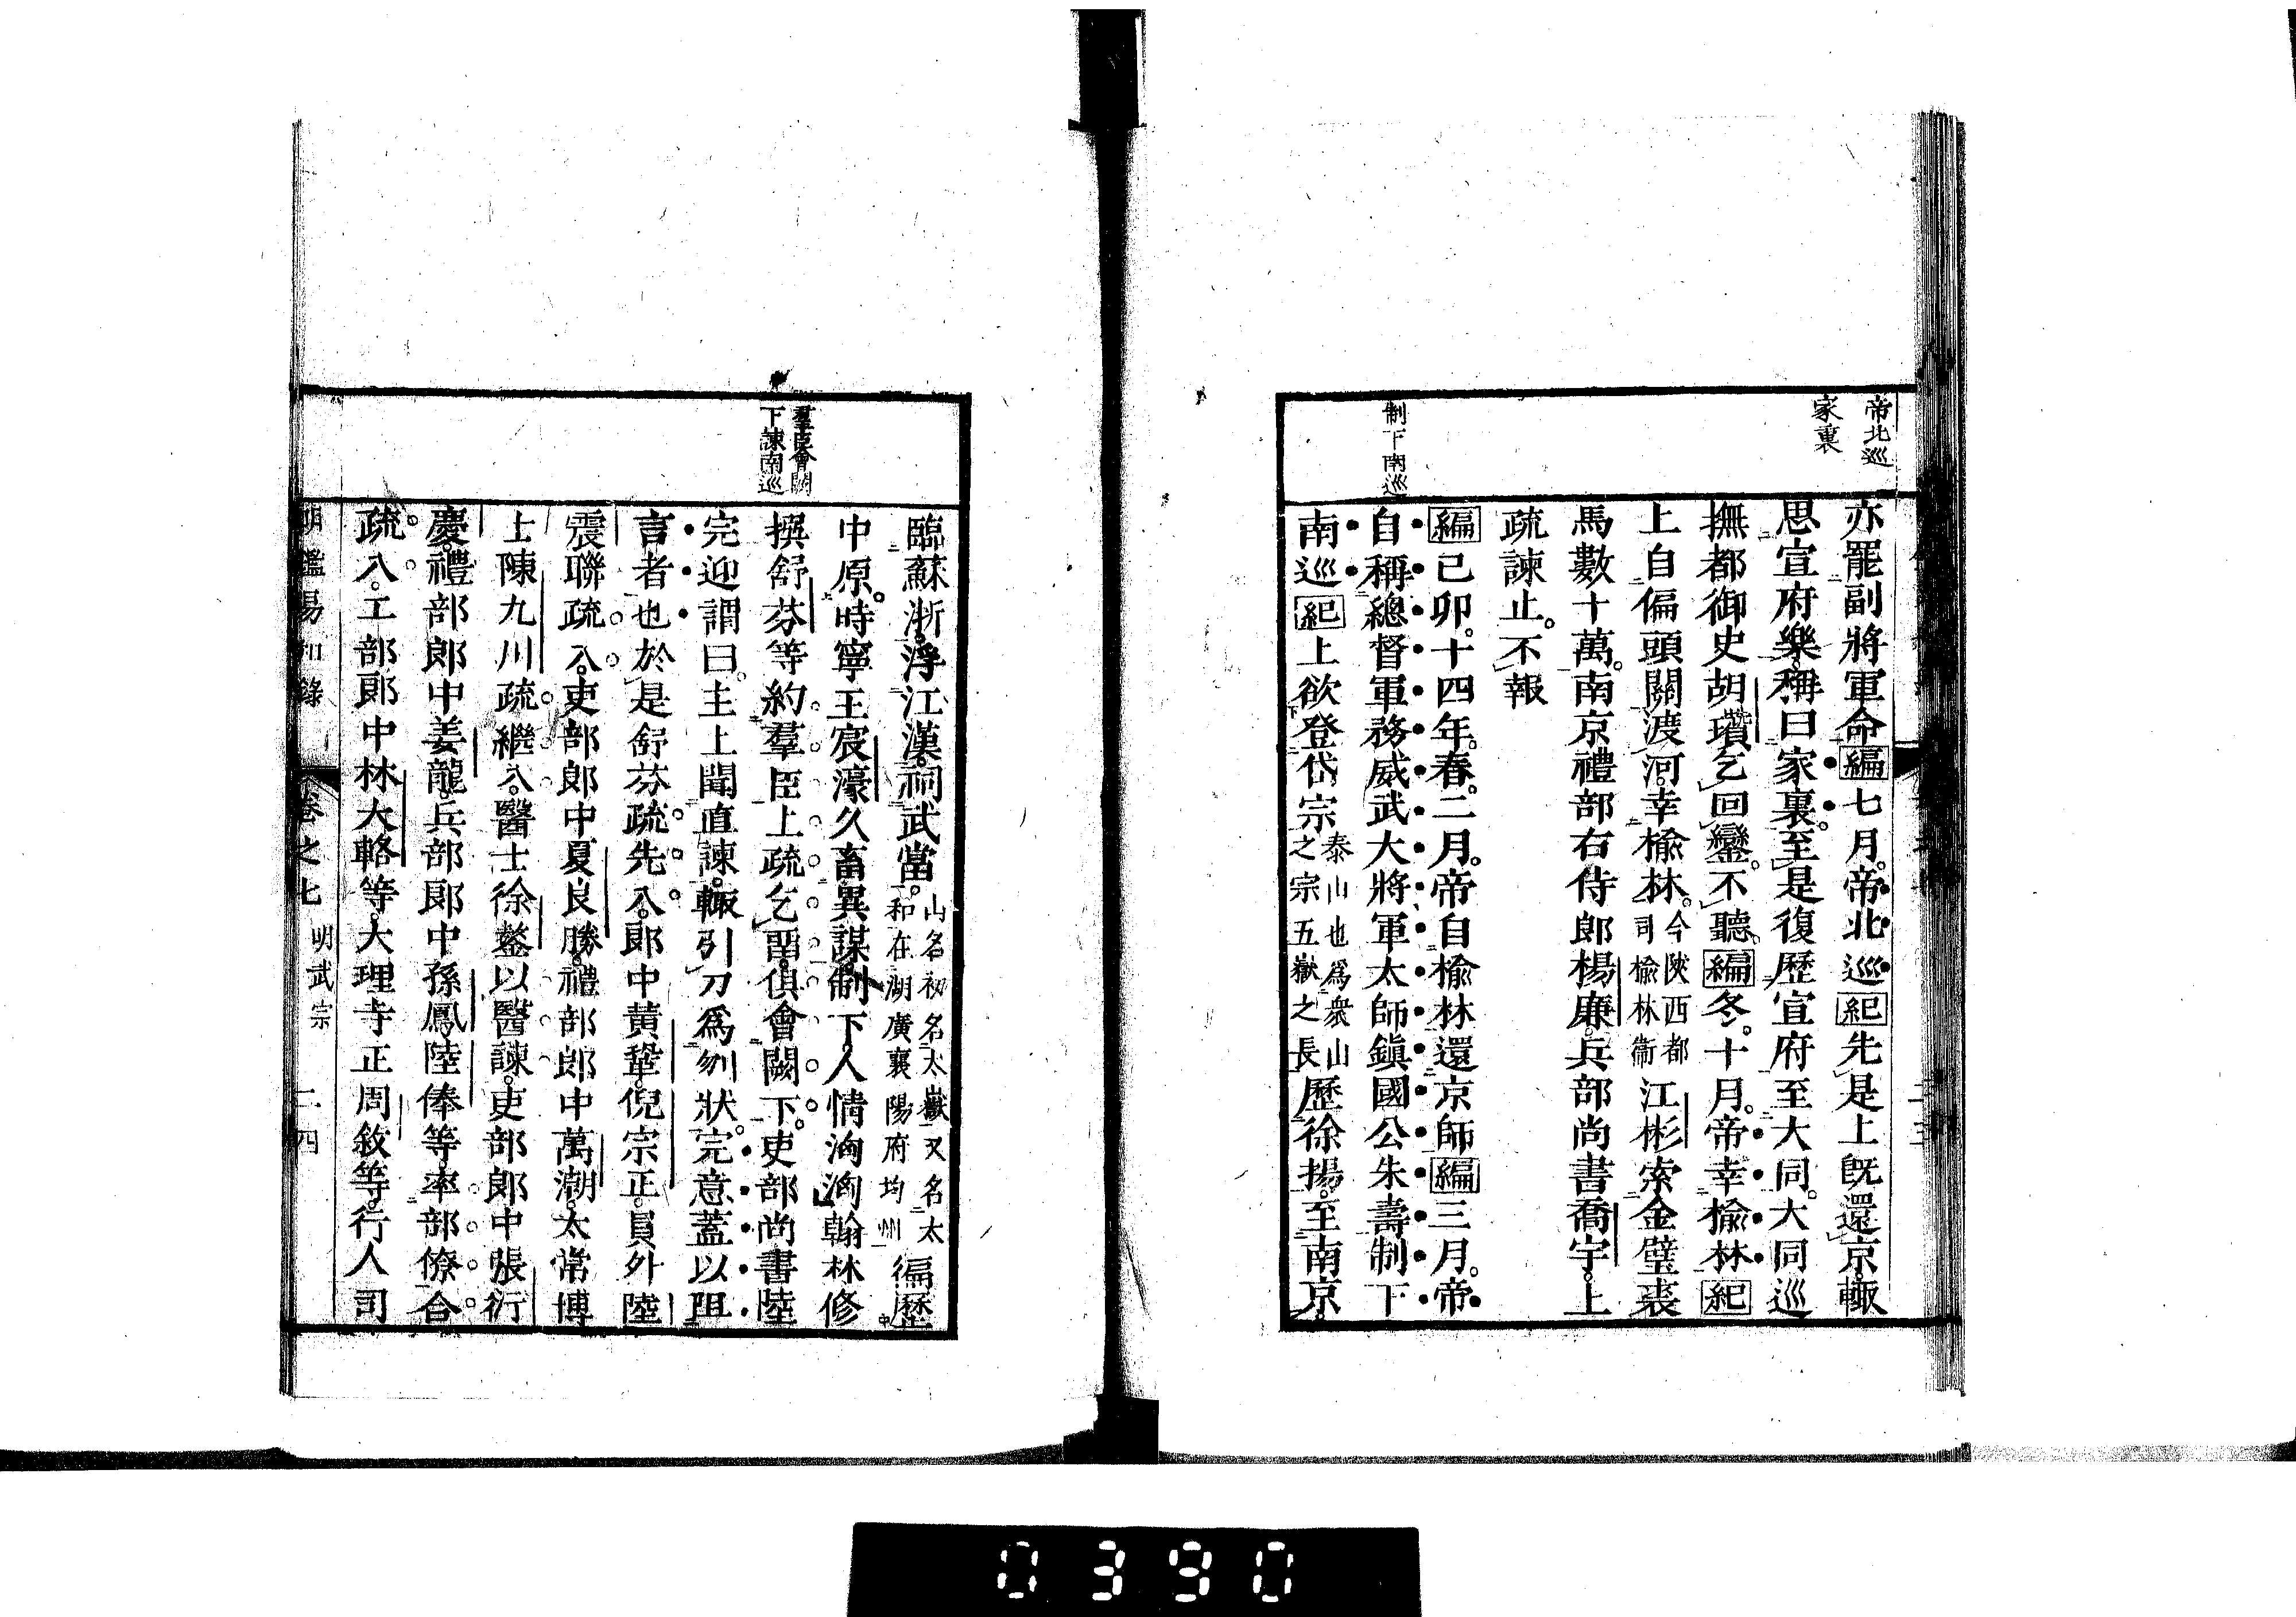 帝北巡
家裏
亦罷副將軍命編七月。帝北巡紀先是上既還京。輙
思宣府樂。稱曰家裏。至是復歷宣府至大同。大同巡
撫都御史胡瓚乞回鑾。不聽。編冬。十月。帝幸榆林紀
上自偏頭關渡河。幸榆林。今陝西都司榆林衞江彬索金璧裘
馬數十萬。南京禮部右侍郎楊廉。兵部尚書喬宇。上
疏諫止。不報
編己卯。十四年。春。二月。帝自榆林還京師編三月。帝
制下南巡
自稱總督軍務威武大將軍太師鎭國公朱壽制下
南巡紀上欲登岱宗泰山也爲衆山之宗五嶽之長歷徐揚。至南京。
臨蘇浙。浮江漢。祠武當。山名初名太嶽又名太和在湖廣襄陽府均州徧歷
中原。時寧王宸濠久畜異謀。制下。人情洶洶翰林修
羣臣會闕
下諫南巡
撰舒芬等約羣臣上疏乞留。俱會闕下。吏部尚書陸
完迎謂曰。主上聞直諫。輙引刀爲刎狀。完意蓋以阻
言者也於是舒芬疏先入。郎中黄鞏。倪宗正。員外陸
震聯疏入。吏部郎中夏良勝。禮部郎中萬潮。太常博
士陳九川疏繼入。醫士徐鏊以醫諫。吏部郎中張衍
慶。禮部郎中姜龍。兵部郎中孫鳳。陸俸等。率部僚合
疏入。工部郎中林大輅等。大理寺正周敘等。行人司
明鑑易知錄 卷之七 明武宗 二四